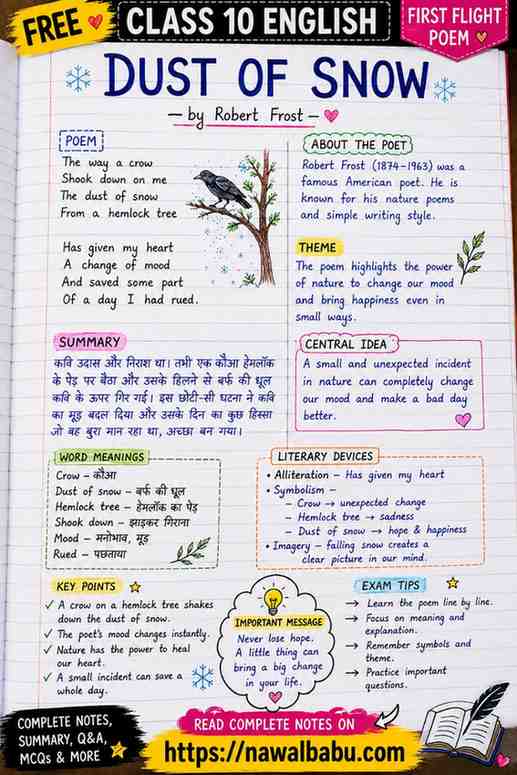 FREE
CLASS 10 ENGLISH
FIRST FLIGHT
POEM
DUST OF SNOW
— by Robert Frost —
POEM
The way a crow
Shook down on me
The dust of snow
From a hemlock tree
Has given my heart
A change of mood
And saved some part
Of a day I had rued.
ABOUT THE POET
Robert Frost (1874–1963) was a
famous American poet. He is
known for his nature poems
and simple writing style.
THEME
The poem highlights the power
of nature to change our mood
and bring happiness even in
small ways.
SUMMARY
कवि उदास और निराश था। तभी एक कौआ हेमलॉक
के पेड़ पर बैठा और उसके हिलने से बर्फ की धूल
कवि के ऊपर गिर गई। इस छोटी-सी घटना ने कवि
का मूड बदल दिया और उसके दिन का कुछ हिस्सा
जो वह बुरा मान रहा था, अच्छा बन गया।
CENTRAL IDEA
A small and unexpected incident
in nature can completely change
our mood and make a bad day
better.
WORD MEANINGS
Crow – कौआ
Dust of snow – बर्फ की धूल
Hemlock tree – हेमलॉक का पेड़
Shook down – झाड़कर गिराना
Mood – मनोभाव, मूड
Rued – पछताया
LITERARY DEVICES
• Alliteration – Has given my heart
• Symbolism –
– Crow → unexpected change
– Hemlock tree → sadness
– Dust of snow → hope & happiness
• Imagery – falling snow creates a
clear picture in our mind.
KEY POINTS
✓ A crow on a hemlock tree shakes
down the dust of snow.
✓ The poet's mood changes instantly.
✓ Nature has the power to heal
our heart.
✓ A small incident can save a
whole day.
IMPORTANT MESSAGE
Never lose hope.
A little thing can
bring a big change
in your life.
EXAM TIPS
→ Learn the poem line by line.
→ Focus on meaning and
explanation.
→ Remember symbols and
theme.
→ Practice important
questions.
COMPLETE NOTES,
SUMMARY, Q&A,
MCQs & MORE
READ COMPLETE NOTES ON
https://nawalbabu.com